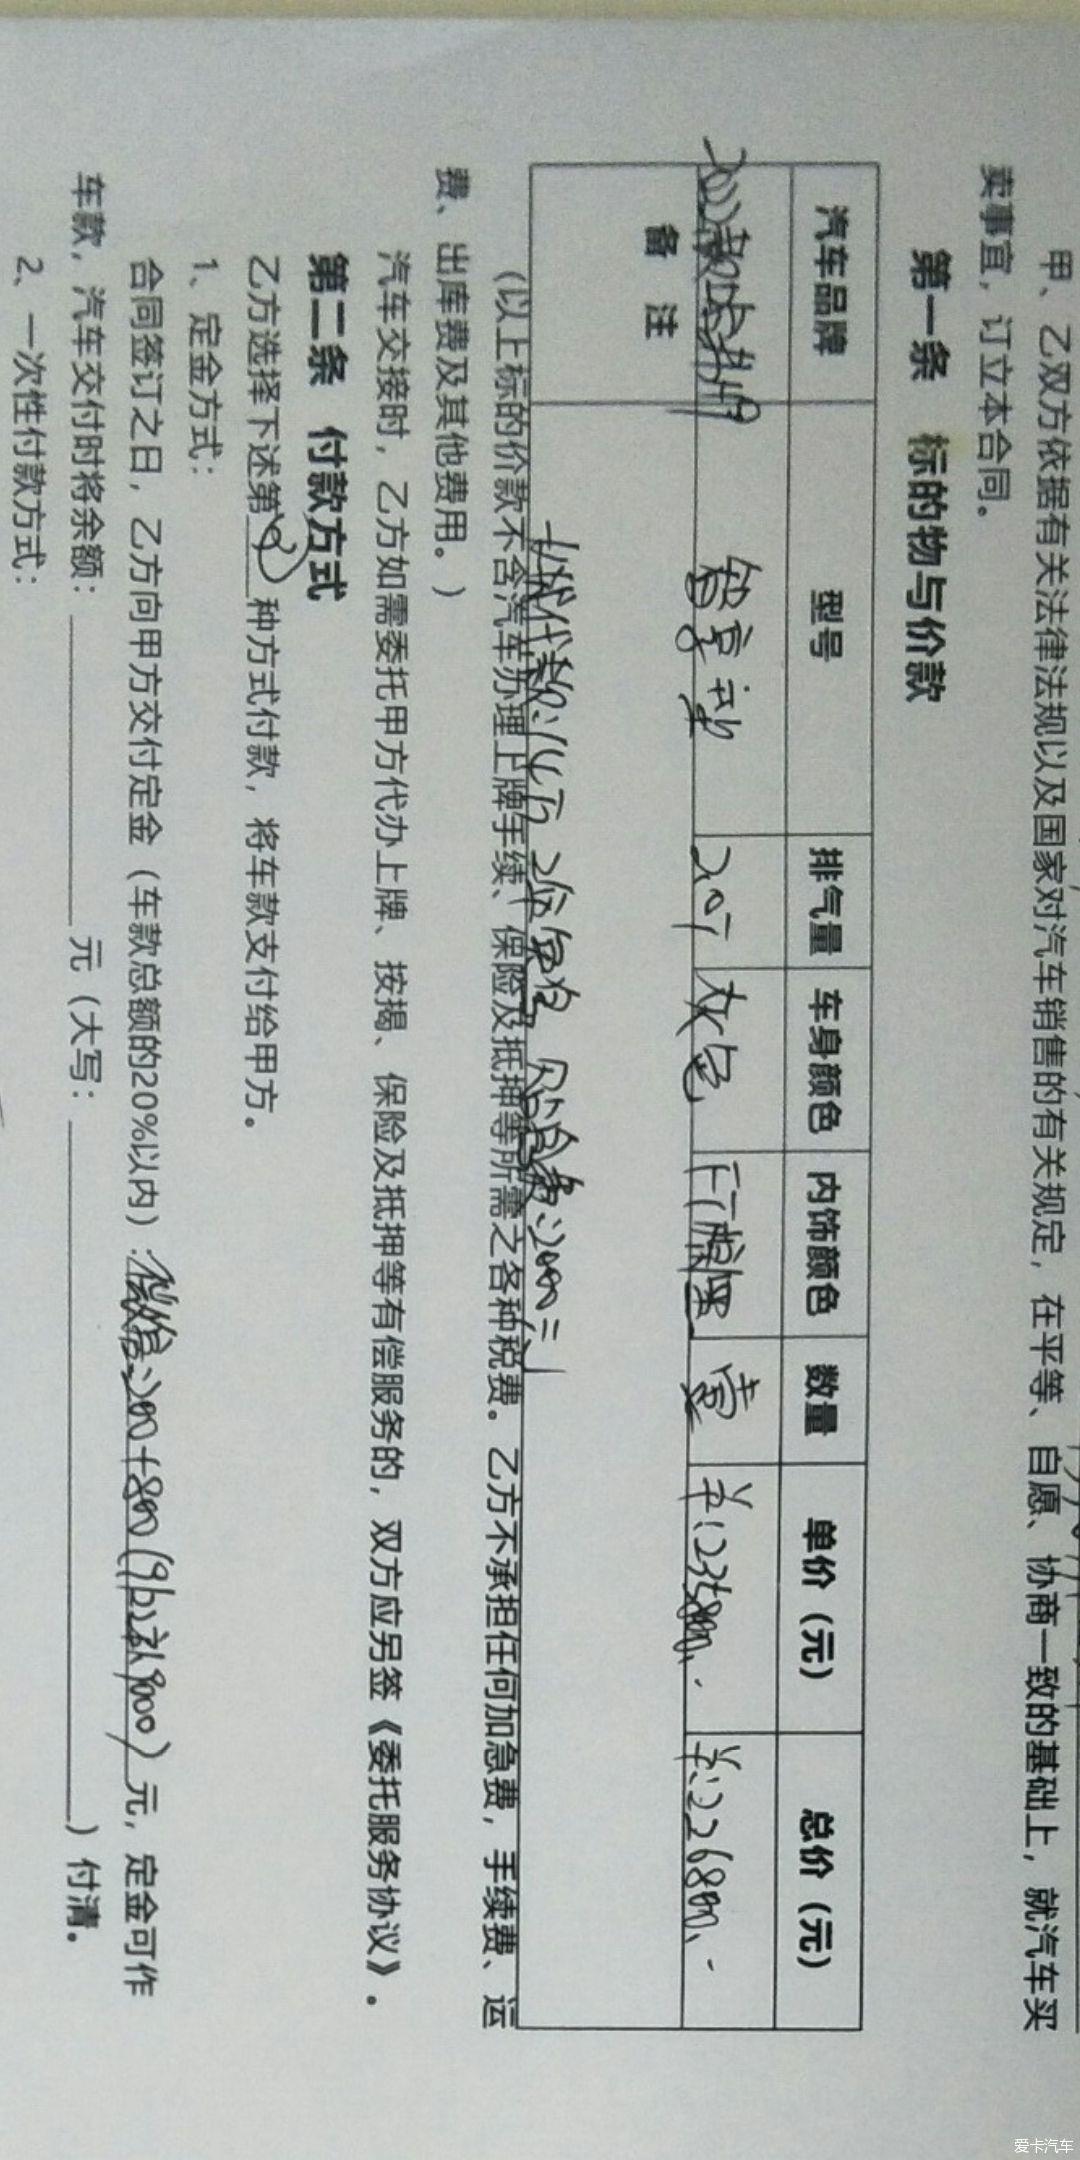 甲、乙双方依据有关法律法规以及国家对汽车销售的有关规定，在平等、自愿、协商一致的基础上，就汽车买
卖事宜，订立本合同。
第一条 标的物与价款
汽车品牌 型号 排气量 车身颜色 内饰颜色 数量 单价（元） 总价（元）
智享型 20T 灰色 壹 ¥:235800.- ¥:226800.-
备 注
（以上标的价款不含汽车办理上牌手续、保险及抵押等所需之各种税费。乙方不承担任何加急费，手续费、运
费、出库费及其他费用。）
汽车交接时，乙方如需委托甲方代办上牌、按揭、保险及抵押等有偿服务的，双方应另签《委托服务协议》。
第二条 付款方式
乙方选择下述第 2 种方式付款，将车款支付给甲方。
1、定金方式：
合同签订之日，乙方向甲方交付定金（车款总额的20%以内）: 元，定金可作
车款，汽车交付时将余额： 元（大写： ）付清。
2、一次性付款方式：
爱卡汽车